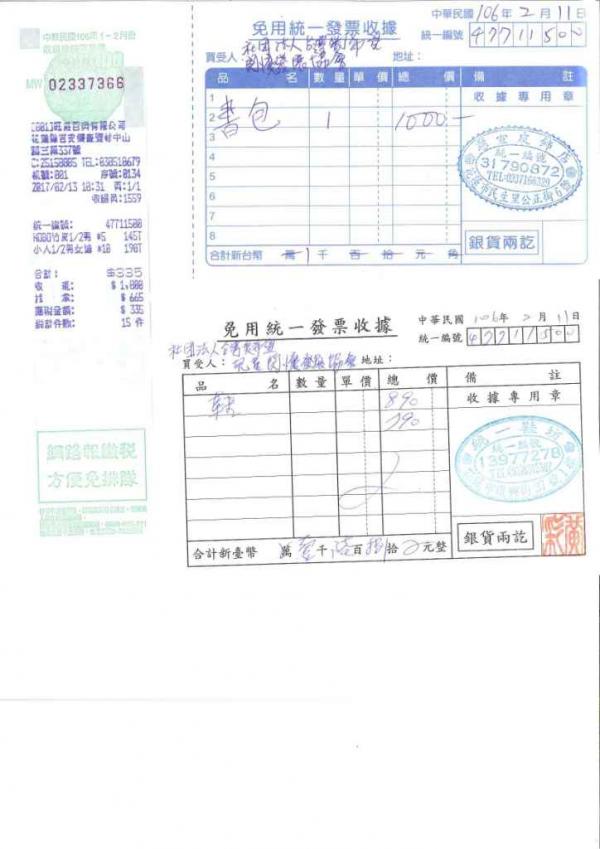 中華民國106年1-2月份
收銀機統一發票
MW 02337366
縣三路337號
C:25150005 TEL:038510679
機號:001 序號:0134
2017/02/13 10:31 頁:1/1
收銀員:1559
統一編號: 47711500
HOBO竹炭1/2男 #5 145T
小人1/2男女襪 #10 190T
合計: $335
收 現: $ 1,000
找 零: $ 665
應稅金額: $ 335
銷售件數: 15 件
網路報繳稅
方便免排隊
免用統一發票收據
中華民國106年2月11日
統一編號 47711500
買受人:社團法人台灣
地址:
品名 數量 單價 總價 備註
1
2 書包 1 1000.-
3
4
5
6
7
8
收據專用章
統一編號
31790872
花蓮市民主里公正街
銀貨兩訖
合計新台幣 萬1千百拾元角
免用統一發票收據
中華民國106年2月11日
統一編號 47711500
買受人:社團法人台灣
地址:
品名 數量 單價 總價 備註
鞋 890
790
收據專用章
統一鞋坊
統一編號
13977278
銀貨兩訖
合計新臺幣 萬壹千陸百捌拾元整